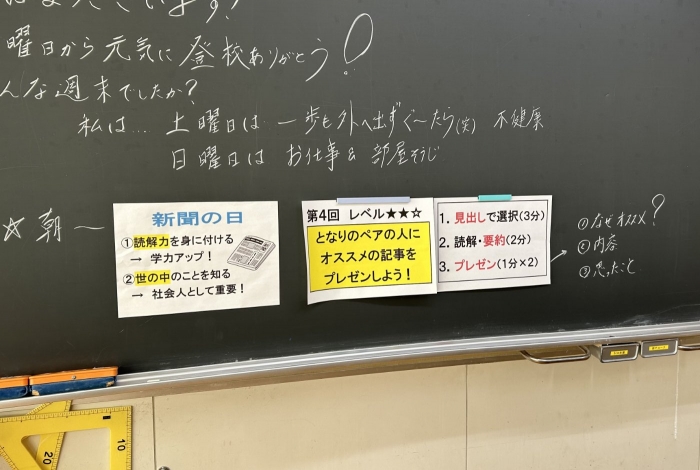 曜日から 元気に 登校ありがとう!
んな週末でしたか?
私は… 土曜日は 一歩も外へ出ずぐ〜たら(笑) 不健康
日曜日は お仕事& 部屋そうじ
☆ 朝〜
新聞の日
①読解力を身に付ける
→ 学力アップ!
②世の中のことを知る
→ 社会人として重要!
第4回 レベル★★☆
となりのペアの人に
オススメの記事を
プレゼンしよう!
1. 見出しで選択(3分)
2. 読解・要約(2分)
3. プレゼン(1分×2)
①なぜオススメ?
②内容
③思ったこと
10
20